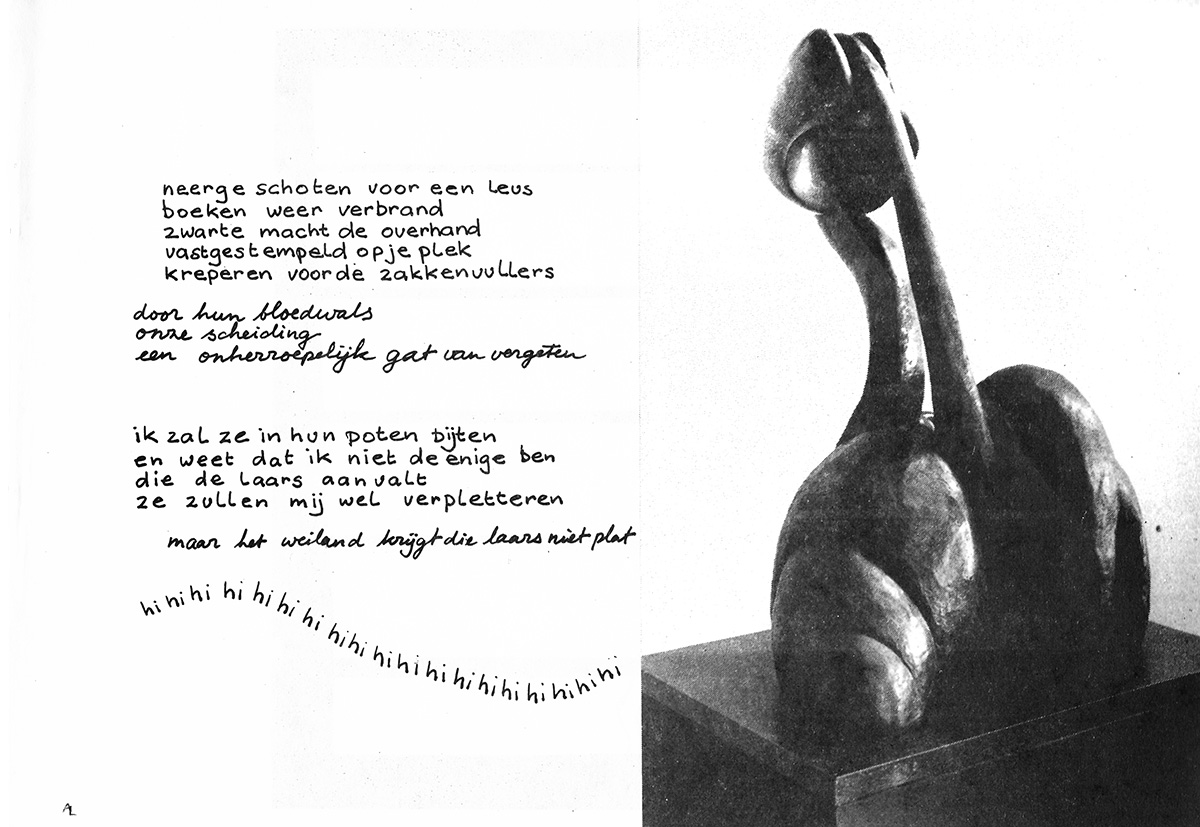 neergeschoten voor een leus
boeken weer verbrand
zwarte macht de overhand
vastgestempeld op je plek
kreperen voor de zakkenvullers
door hun bloedwals
onze scheiding
een onherroepelijk gat van vergeten
ik zal ze in hun poten bijten
en weet dat ik niet de enige ben
die de laars aanvalt
ze zullen mij wel verpletteren
maar het weiland krijgt die laars niet plat
hi hi hi hi hi hi hi hi hi hi hi hi hi hi hi hi hi hi hi hi
AL